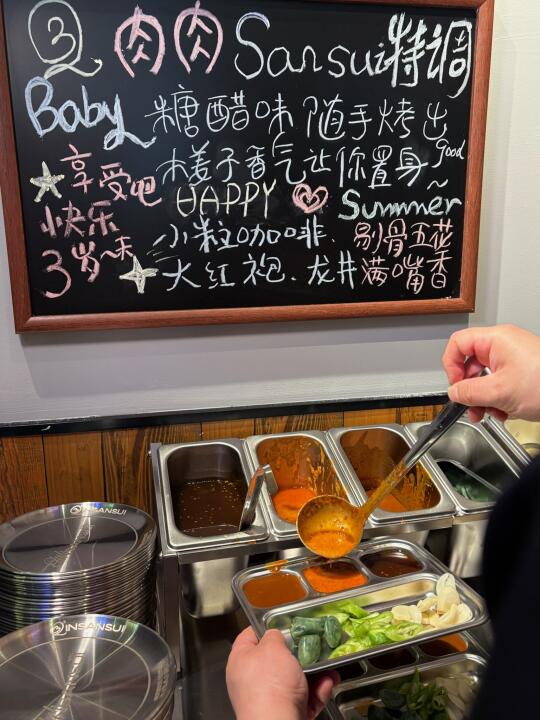 ③ 肉肉 Sansui特调
Baby 糖醋味 随手烤出
木姜子香气让你置身 good
★ 享受吧 HAPPY ♡ Summer~
快乐 小粒咖啡、剔骨五花
3岁~末 大红袍、龙井满嘴香
INSANSUI
INSANSUI